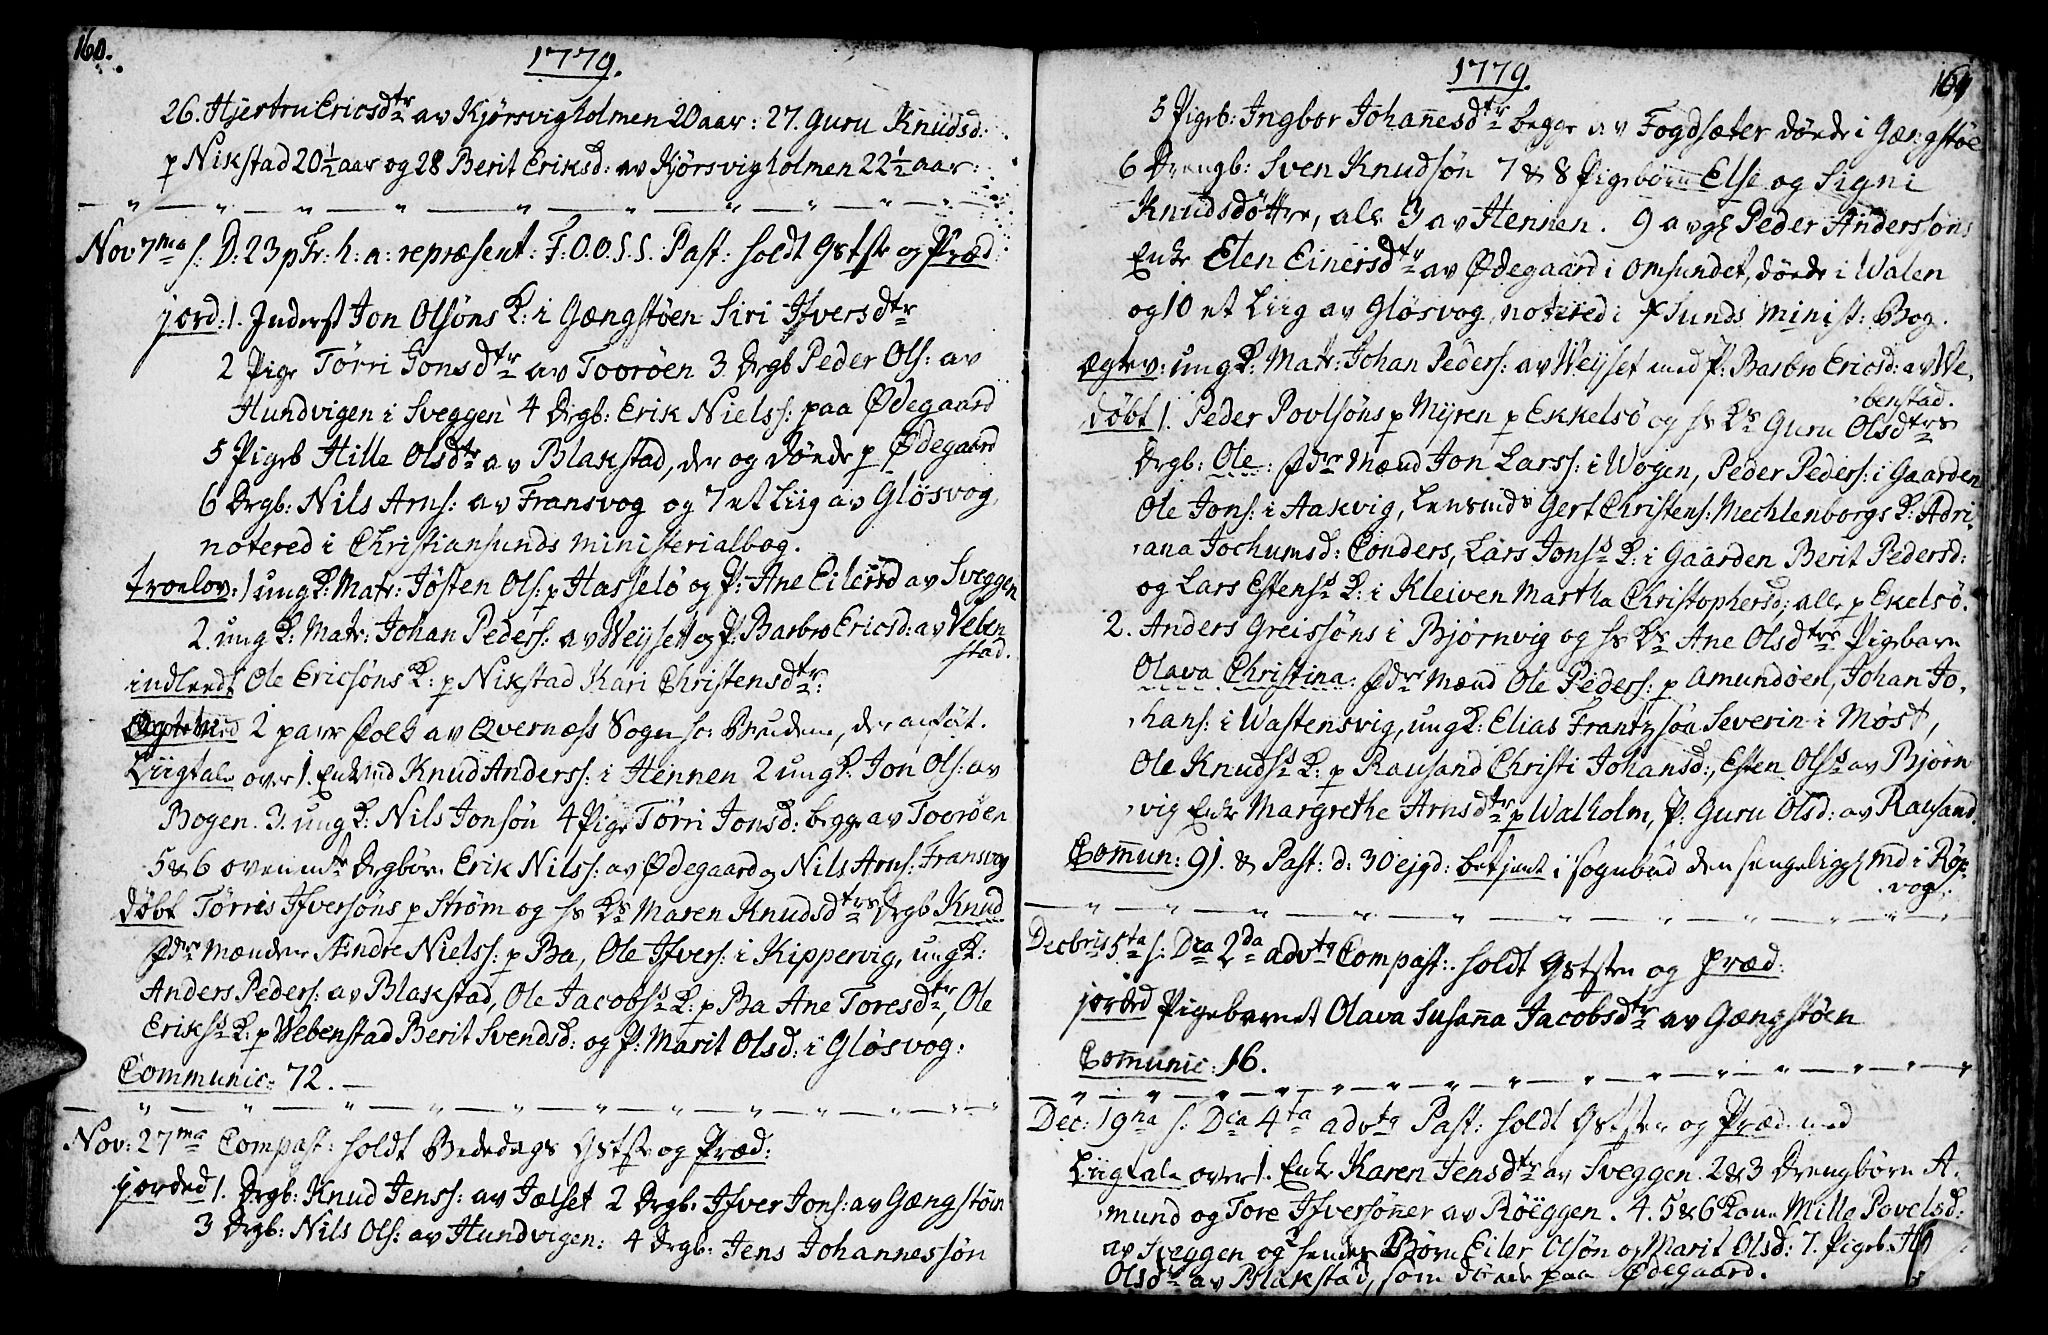 160.
1779.
26. Hjertru Ericsdtr av Kjørsvigholmen 20 aar: 27. Guru Knudsd:
p Nikstad 20½ aar og 28 Berit Eriksd: av Kjörsvigholmen 22½ aar:
Nov 7ma s: D: 23 p Tr: h: a: repræsent: F: O. O. S. S. Past: holdt Gstste og Præd:
jord: 1. Inderst Jon Olsöns K: i Gængstöen Siri Ifversdtr
2 Pige Törri Jonsdtr av Tooröen 3 Drgb Peder Ols: av
Hundvigen i Sveggen 4 Drgb: Erik Nielss: paa Ødegaard
5 Pigeb Hille Olsdtr av Blakstad, der og döede p Ødegaard
6 Drgb: Nils Arns: av Fransvog og 7 et Liig av Glösvog,
notered i Christiansunds ministerialbog.
trolov: 1 ung K: Matr: Jösten Ols: p Hasselö og P: Ane Eilersd av Sveggen
2. ung K: Matr: Johan Peders: av Weyset og P: Barbro Ericsd: av Veben
stad.
indleedt Ole Ericsöns K: p Nikstad Kari Christensdtr:
Ægteviid 2 paar Folk av Qvernæss Sogn
Liigtale over 1. Enkmd Knud Anderss: i Hennen 2 ung K: Jon Ols: av
Bogen. 3. ung K: Nils Jonsön 4 Pige Törri Jonsd: begge av Tooröen
5 & 6 ovenmte Drgbörn Erik Nilss: av Ødegaard og Nils Arns: Fransvog
döbt Törris Ifversöns p Ström og hs Ks Maren Knudsdtrs Drgb Knud
fdre Mændene Endre Nielss: p Ba, Ole Ifvers: i Kippervig, ung K:
Anders Peders: av Blakstad, Ole Jacobss K: p Ba Ane Toresdtr, Ole
Erikss K: p Webenstad Berit Svendsd: og P: Marit Olsd: i Glösvog:
Communic: 72.
Nov: 27ma Compast: holdt Bededags Gstste og Præd:
jorded 1. Drgb: Knud Jenss: av Jælset 2 Drgb: Ifver Jons: av Gængstöen
3 Drgb: Nils Ols: av Hundvigen: 4 Drgb: Jens Johannessön
1779.
161
5 Pigeb: Ingbor Johannesdtr begge av Fogdsæter döede i Gængstöe
6 Drengb: Sven Knudsön 7 & 8 Pigebörn Else og Signi
Knudsdöttre, alle 3 av Hennen. 9 avgl Peder Anderssöns
Enke Elen Einersdtr av Ødegaard i Omsundet, döede i Walen
og 10 et Liig av Glösvog, notered i Xsunds minist: Bog.
Ægtev: ung K: Matr: Johan Peders: av Weyset med P: Barbro Ericsd: av We,
benstad.
döbt 1. Peder Povlsöns p Myren p Ekkelsö og hs Ks Guru Olsdtrs
Drgb: Ole: fdre Mænd Jon Larss: i Wogen, Peder Peders: i Gaarden
Ole Jons: i Aakvig, Lensmds Gert Christens: Mechlenborgs K: Adri,
ana Jochumsd: Conders, Lars Jonss K: i Gaarden Berit Pedersd:
og Lars Estenss K: i Kleiven Martha Christophersd: alle p Ekelsö.
2. Anders Greissöns i Bjørnvig og hs Ks Ane Olsdtrs Pigebarn
Olava Christina: fdre Mænd Ole Peders: p Amundöen, Johan Jo,
hans: i Wastensvig, ung K: Elias Frantzsön Severin i Möst,
Ole Knudss K: p Rausand Christi Johansd:, Esten Olss av Bjørn
vig Enke Margrethe Arnsdtr p Walholm, P: Guru Olsd: av Rausand.
Comun: 91. & Past: d: 30 ejgd: betjent i sognebud den sengeligg md i Röe,
vog:
Decbris 5ta s: Dca 2da advtq Compast: holdt Gststen og Præd:
jorded Pigebarnet Olava Susanna Jacobsdtr av Gængstöen
Comunic: 16.
Dec: 19na s: Dca 4ta advtq Past: holdt Gststen og Præd: med
Liigtale over 1. Enke Karen Jensdtr av Sveggen. 2 & 3 Drengbörn A,
mund og Tore Ifversönner av Röeggen. 4. 5 & 6 Kone Mille Povelsd:
av Sveggen og 2 hendes Börn Eiler Olsön og Marit Olsd: 7. Pigeb:
Olsdtr av Blakstad, som döede paa Ødegaard.